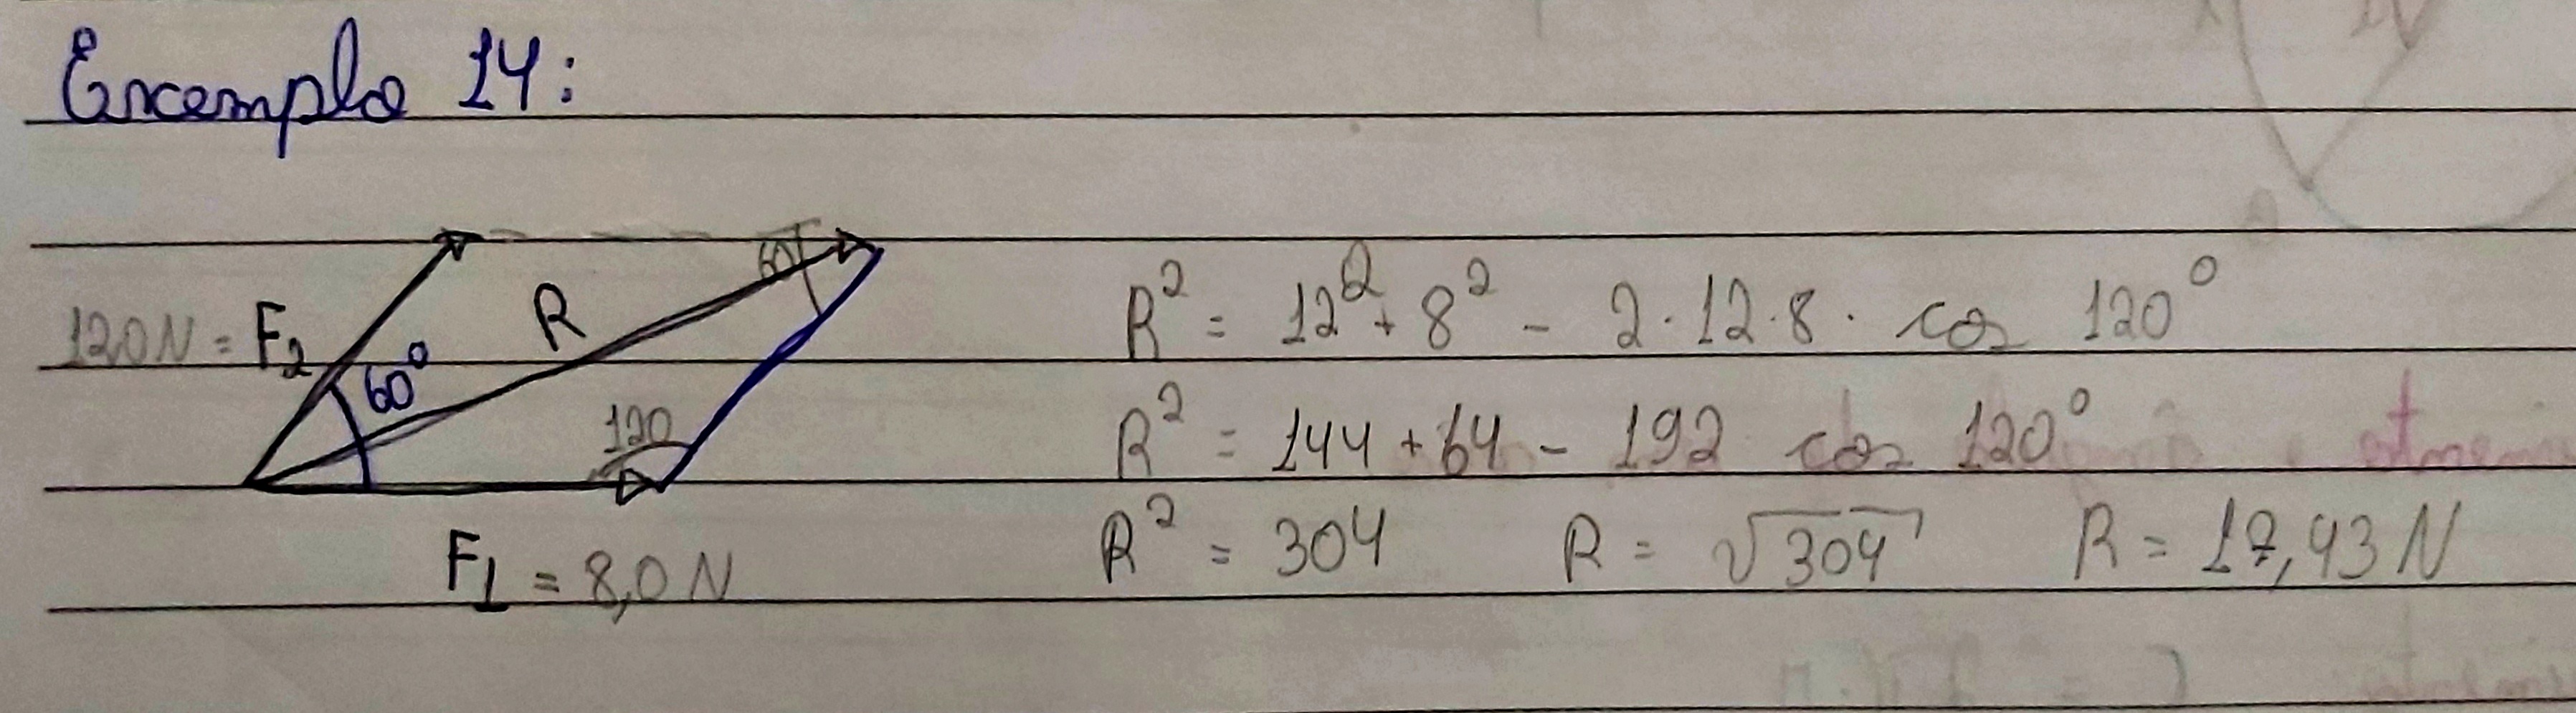 Exemplo 14:
60
120N = F2
R
60°
120
F1 = 8,0 N
R² = 12² + 8² - 2·12·8· cos 120°
R² = 144 + 64 - 192 cos 120°
R² = 304 R = √304 R = 17,43 N